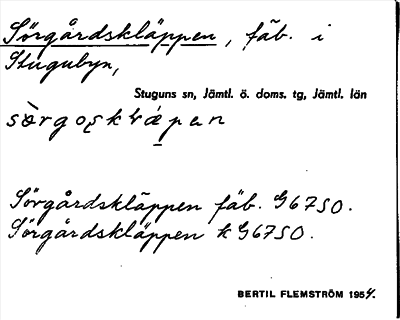 Sörgårdskläppen, fäb. i
Stugubyn,
Stuguns sn, Jämtl. ö. doms. tg, Jämtl. län
Sörgårdskläppen fäb. G67SO.
Sörgårdskläppen k G67SO.
BERTIL FLEMSTRÖM 1954.